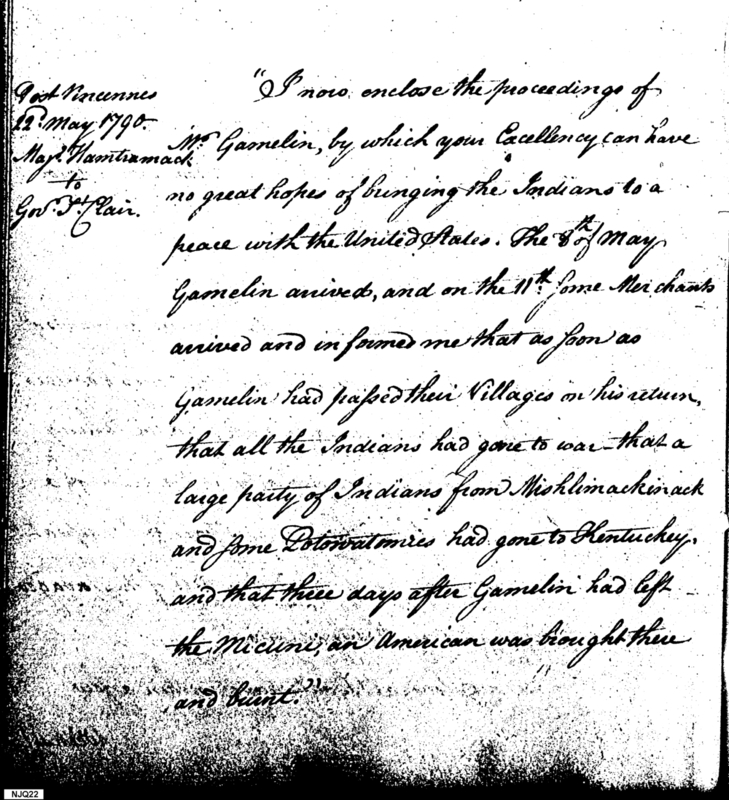 Post Vincennes
22d. May 1790.
Majr. Hamtramack
to
Govr. St. Clair.
"I now enclose the proceedings of
Mr. Gamelin, by which your Excellency can have
no great hopes of bringing the Indians to a
peace with the United States. The 8th of May
Gamelin arrived, and on the 11th. some Merchants
arrived and informed me that as soon as
Gamelin had passed their Villages on his return,
that all the Indians had gone to war – that a
large party of Indians from Mishlimackinack
and some Potowatomies had gone to Kentuckey.
and that three days after Gamelin had left
the Miamie, an American was brought there
and burnt."
NJQ22